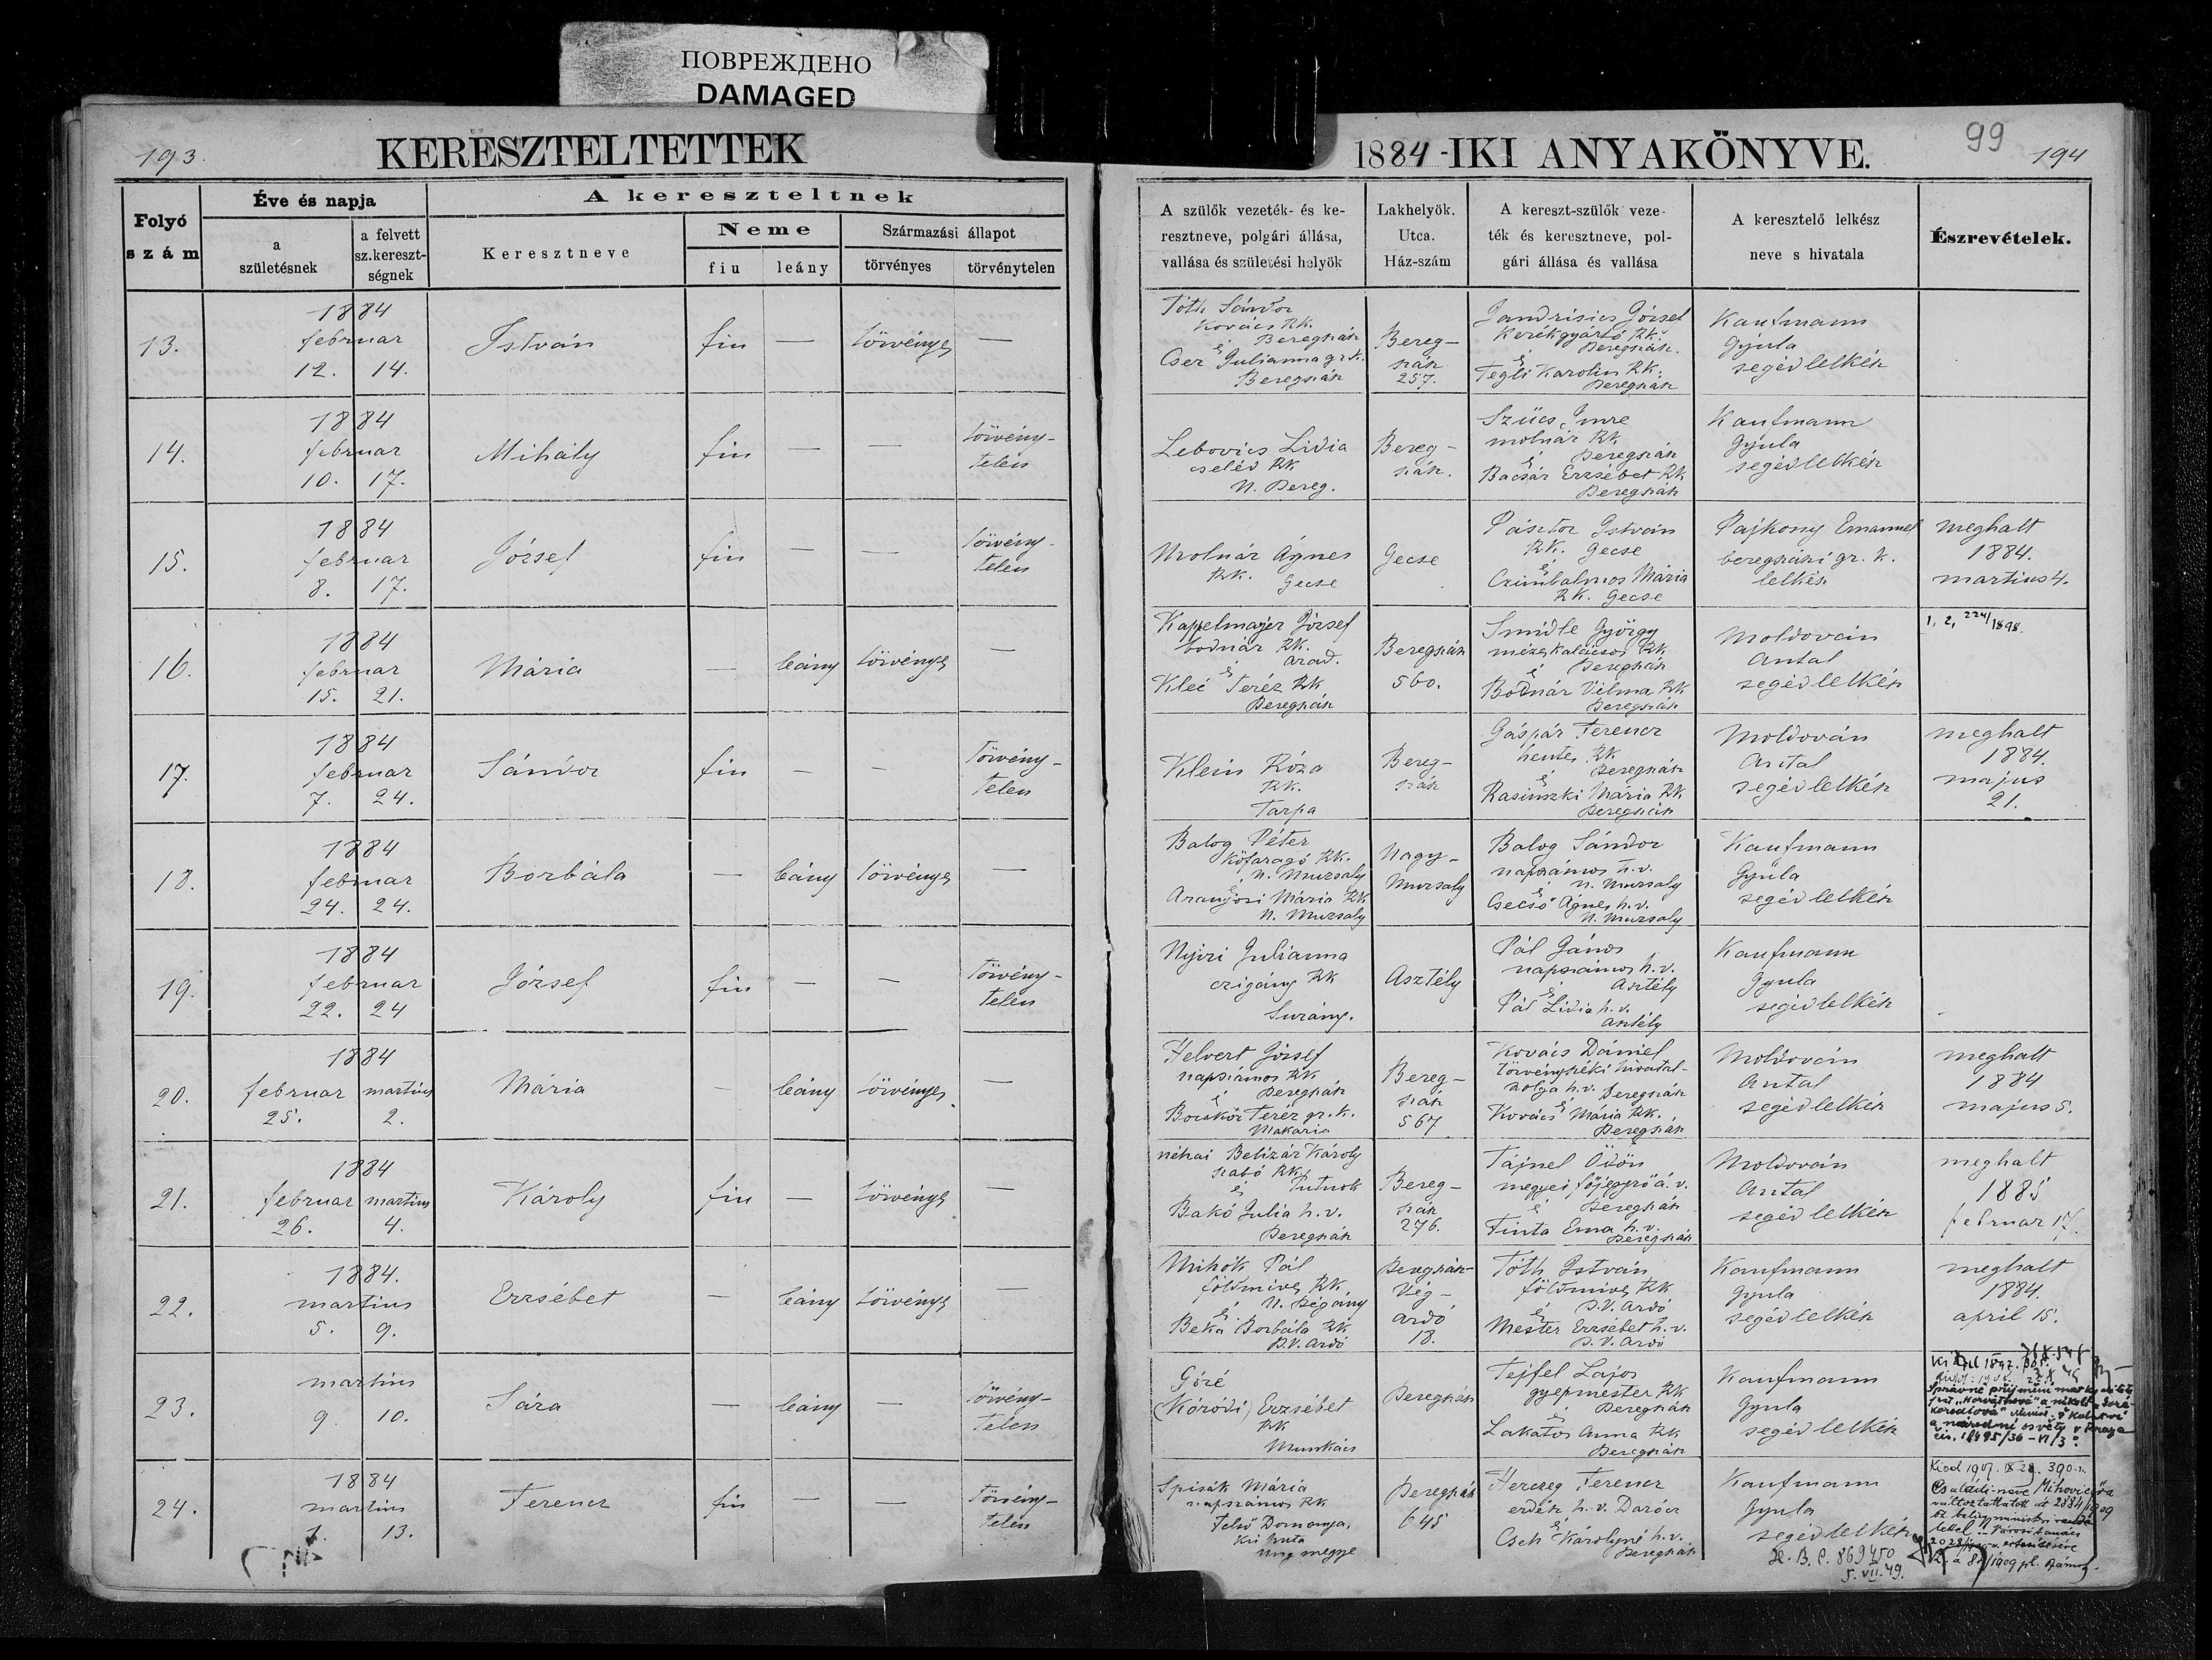 ПОВРЕЖДЕНО
DAMAGED
193.
KERESZTELTETTEK
Folyó szám
Éve és napja
a születésnek
a felvett sz.kereszt-ségnek
A kereszteltnek
Keresztneve
Neme
fiu
leány
Származási állapot
törvényes
törvénytelen
1884-IKI ANYAKÖNYVE.
99
194
A szülők vezeték- és ke-
resztneve, polgári állása,
vallása és születési helyök
Lakhelyök.
Utca.
Ház-szám
A kereszt-szülők veze-
ték és keresztneve, pol-
gári állása és vallása
A keresztelő lelkész
neve s hivatala
Észrevételek.
13.
1884
februar
12. 14.
István
fiu
—
törvényes
—
Tóth Sándor
Kovács Rk.
Beregszász
és
Cser Julianna g. k.
Beregszász
Bereg-
szász
257.
Jandrisics József
Kerékgyártó Rk.
Beregszász.
és
Tegli Karolin Rk.
Beregszász
Kaufmann
Gyula
segédlelkész
14.
1884
februar
10. 17.
Mihály
fiu
—
—
törvény-
telen
Lebovics Lidia
cseléd Rk
N. Bereg.
Bereg-
szász.
Szücs Imre
molnár Rk
Beregszász
és
Bacsár Erzsébet Rk
Beregszász
Kaufmann
Gyula
segédlelkész
15.
1884
februar
8. 17.
József
fiu
—
—
törvény-
telen
Molnár Ágnes
Rk. Gecse
Gecse
Pásztor István
Rk. Gecse
és
Czimbalmos Mária
Rk. Gecse
Pajkossy Emanuel
beregszászi gr. k.
lelkész
meghalt
1884.
martius 4.
16.
1884
februar
15. 21.
Mária
—
leány
törvényes
—
Kappelmajer József
bodnár Rk.
Arad.
és
Klei Teréz Rk
Beregszász
Beregszász
560.
Smidle György
mézeskalácsos Rk
Beregszász
és
Bodnár Vilma Rk
Beregszász
Moldován
Antal
segédlelkész
1, 2, 224/1898.
17.
1884
februar
7. 24.
Sándor
fiu
—
—
törvény-
telen
Klein Róza
Rk.
Tarpa
Bereg-
szász
Gáspár Ferencz
hentes Rk
Beregszász
és
Rasinszki Mária Rk
Beregszász
Moldován
Antal
segédlelkész
meghalt
1884.
majus
21.
18.
1884
februar
24. 24.
Borbála
—
leány
törvényes
—
Balog Péter
kőfaragó Rk.
N. Muzsaly
és
Aranyosi Mária Rk
N. Muzsaly
Nagy-
Muzsaly
Balog Sándor
napszámos h.v.
N. Muzsaly
és
Csecső Ágnes h.v.
N. Muzsaly
Kaufmann
Gyula
segédlelkész
19.
1884
februar
22. 24
József
fiu
—
—
törvény-
telen
Nyiri Julianna
czigány Rk
Surány.
Asztély
Pál János
napszámos h.v.
Asztély
és
Pál Lidia h.v.
Asztély
Kaufmann
Gyula
segédlelkész
20.
1884
februar martius
25. 2.
Mária
—
leány
törvényes
—
Helvert József
napszámos Rk
Beregszász
és
Bocskor Teréz gr. k.
Makaria
Bereg-
szász
567
Kovács Dániel
törvényszéki hivatal-
szolga h.v. Beregszász
és
Kovács Mária Rk.
Beregszász
Moldován
Antal
segédlelkész
meghalt
1884
majus 5.
21.
1884
februar martius
26. 4.
Károly
fiu
—
törvényes
—
néhai Belizár Károly
szabó Rk
és Putnok
Bakó Julia h.v.
Beregszász
Bereg-
szász
276.
Tájnel Ödön
megyei főjegyző á. v.
és Beregszász
Tinta Ema h.v.
Beregszász
Moldován
Antal
segédlelkész
meghalt
1885
februar 17.
22.
1884.
martius
5. 9.
Erzsébet
—
leány
törvényes
—
Mihók Pál
földmives Rk
N. Bégány
és
Beka Borbála Rk
B.V. Ardó
Beregszász
Vég-
ardó
18.
Tóth István
földmives Rk
B.V. Ardó
és
Mester Erzsébet h.v.
B.V. Ardó
Kaufmann
Gyula
segédlelkész
meghalt
1884.
april 15.
23.
martius
9. 10.
Sára
—
leány
—
törvény-
telen
Góré
(Kóródi) Erzsébet
Rk
Munkács
Beregszász
Tejfel Lajos
gyepmester Rk
Beregszász
és
Lakatos Anna Rk
Beregszász
Kaufmann
Gyula
segédlelkész
Správné příjmení matky dítěte
"Horváthová" a nikoli "Goré
a národní osvěty v Praze
24.
1884
martius
1. 13.
Ferencz
fiu
—
—
törvény-
telen
Spisák Mária
napszámos Rk
Felső Domonya,
Kis huta
Ung megye
Beregszász
645
Herczeg Ferencz
erdész h.v. Darócz
és
Cseh Károlyné h.v.
Beregszász
Kaufmann
Gyula
segédlelkész
Családi neve Mihovics
változtattatott
869450
5. VII. 49.